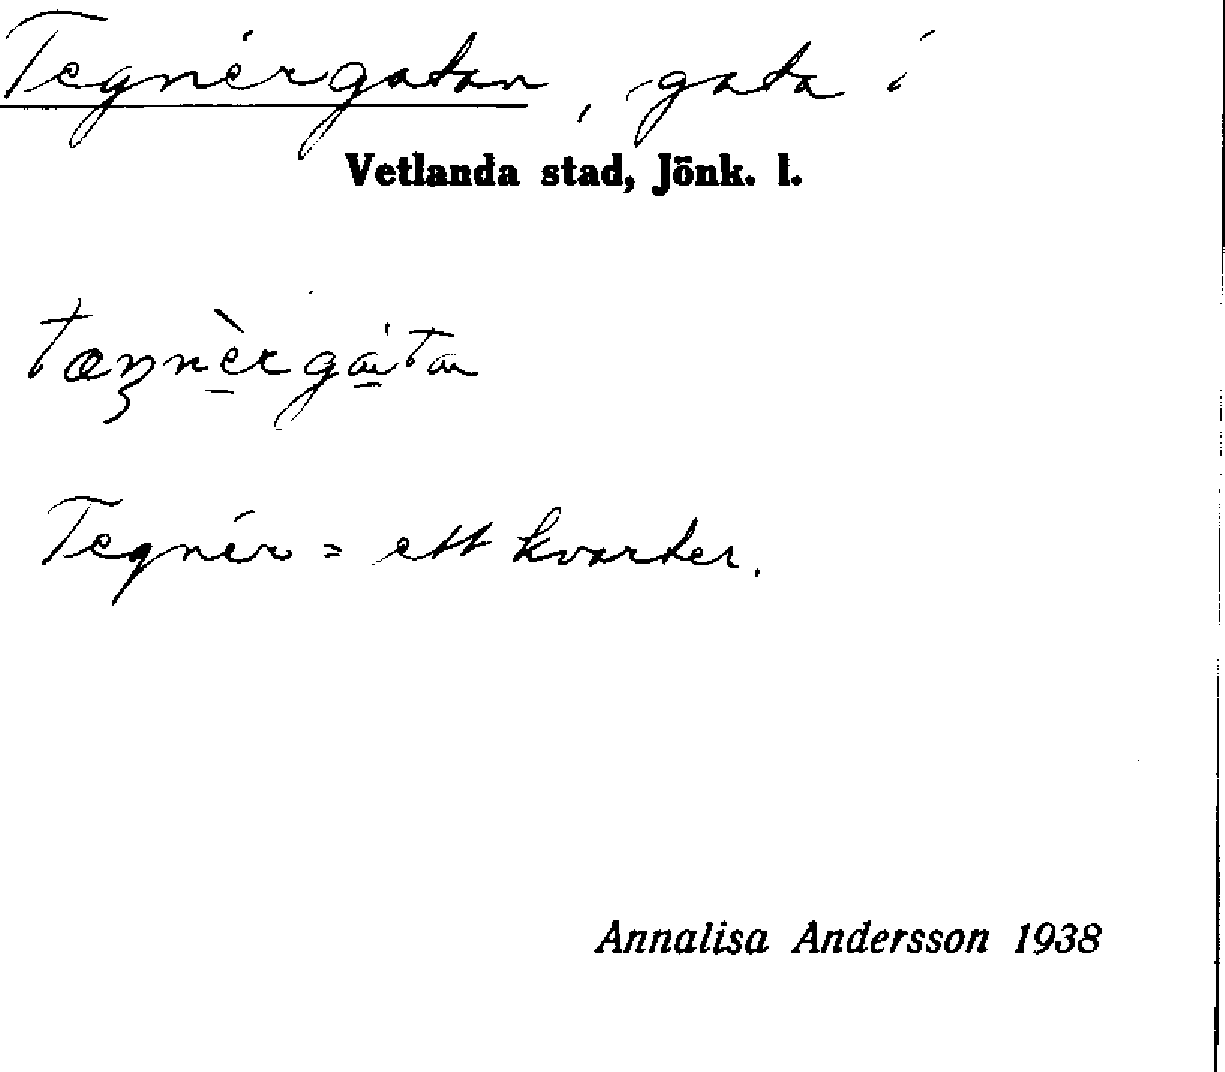 Tegnérgatan, gata i
Vetlanda stad, Jönk. l.
Tegnér = ett kvarter.
Annalisa Andersson 1938